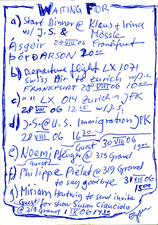 WAITING FOR
a) Start Dinner @ Klaus + Irina
w/ J.S. & Mössle
Asgeir 27 VIII 06 Frankfurt
PÓR ĐARSON 20 00
b) Departure flight LX 1071
Swiss Air to Zurich w/J.S.
FRANKFURT 28 VIII 06 10 00
c) " LX 014 Zurich → JFK
28 VIII 06 w/J.S.
d) J.S. @ U.S. Immigration JFK
28 VIII 06 16
e) Noemi 30 VIII 06
Guest @ 319 Grand
f) Philippe @ 319 Grand
to say goodbye 31 VIII 06
g) Miriam Hartwig to send invite
Guest for show Susan
@ 319 Grand 1 IX 06